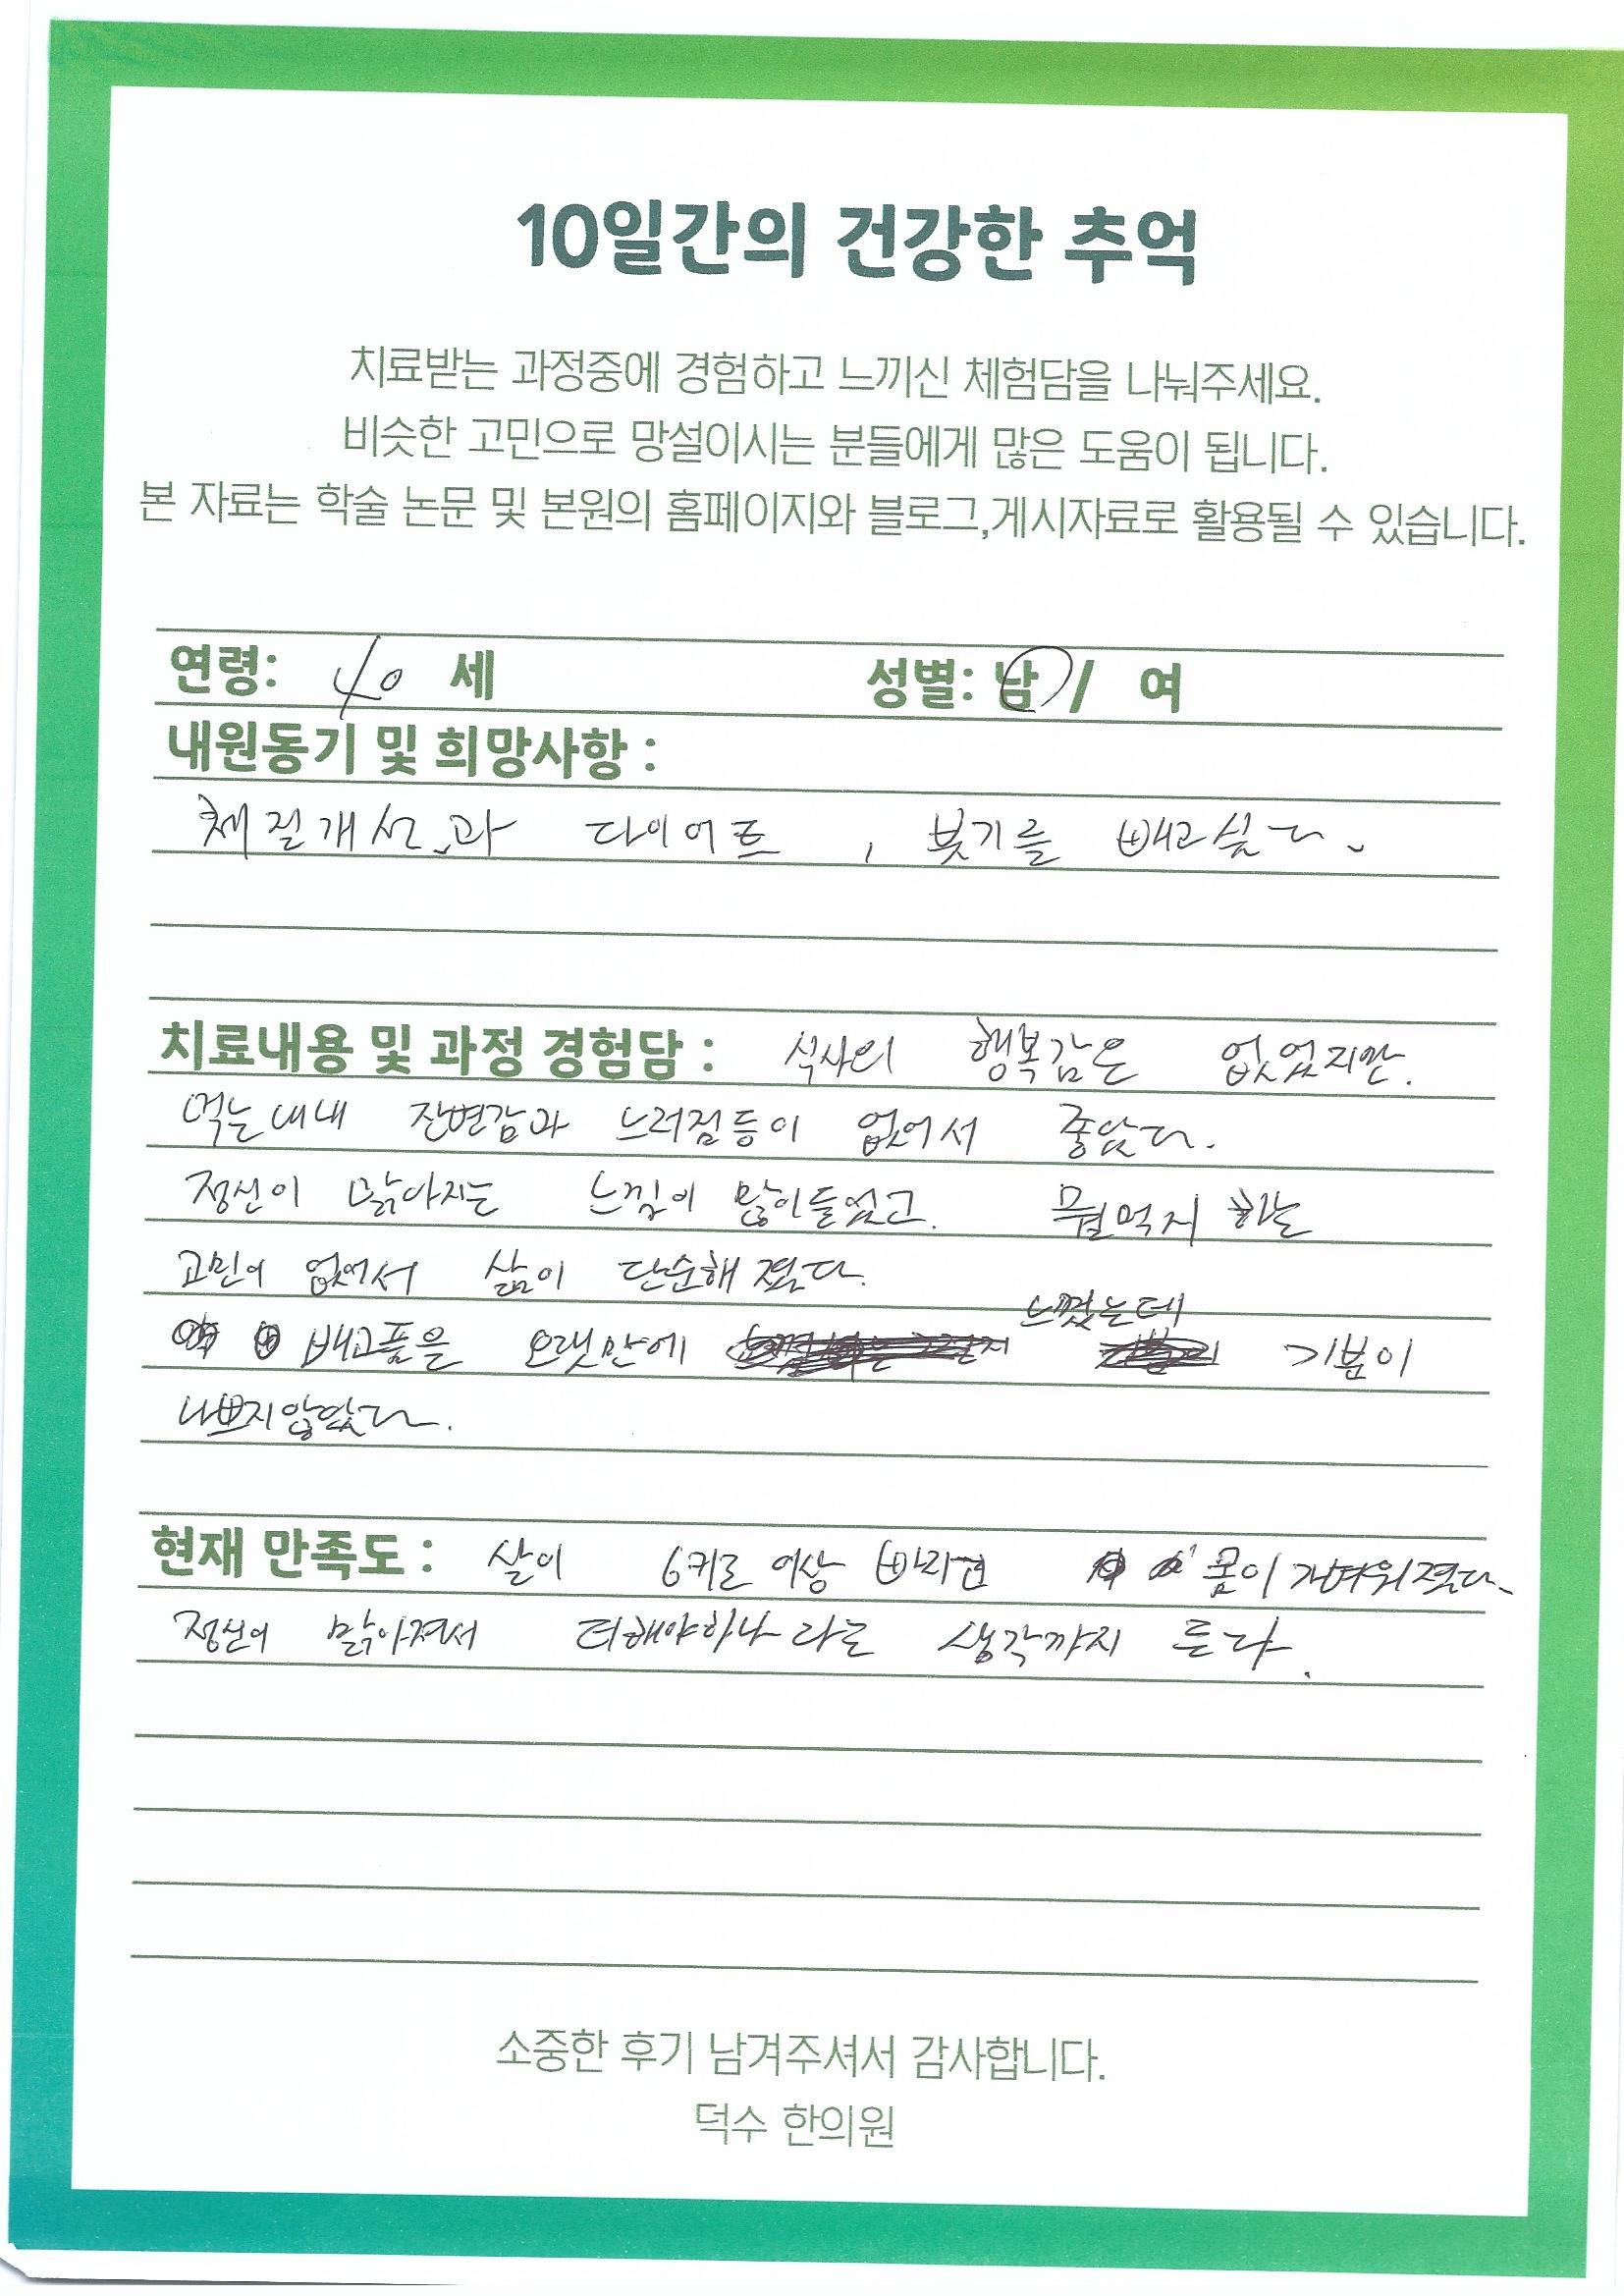 10일간의 건강한 추억
치료받는 과정중에 경험하고 느끼신 체험담을 나눠주세요.
비슷한 고민으로 망설이시는 분들에게 많은 도움이 됩니다.
본 자료는 학술 논문 및 본원의 홈페이지와 블로그,게시자료로 활용될 수 있습니다.
연령: 40 세 성별: 남 / 여
내원동기 및 희망사항 :
체질개선과 다이어트 , 붓기를 빼고싶다.
치료내용 및 과정 경험담 : 식사의 행복감은 없었지만.
먹는내내 잔변감과 느러짐등이 없어서 좋았다.
정신이 맑아지는 느낌이 많이들었고. 뭘먹지 하는
고민이 없어서 삶이 단순해 졌다.
느꼈는데
배고픔을 오랫만에 기분이
나쁘지않았다.
현재 만족도 : 살이 6키로 이상 빠지면 몸이 가벼워졌다.
정신이 맑아져서 더해야하나 라는 생각까지 든다.
소중한 후기 남겨주셔서 감사합니다.
덕수 한의원